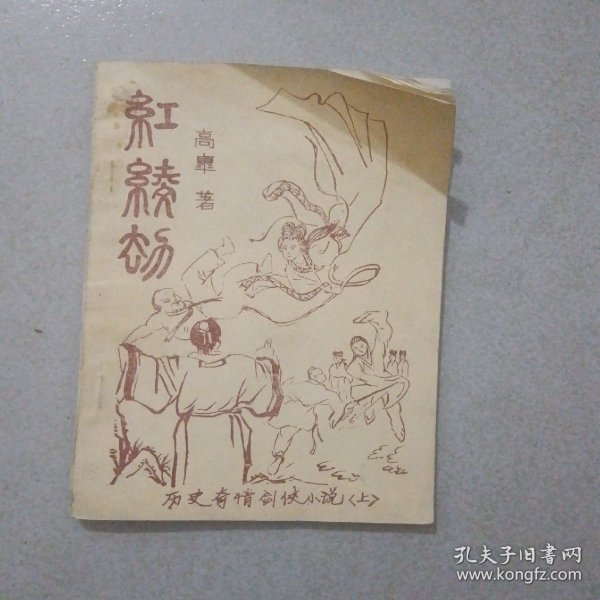 紅綾劫
高皋 著
历史奇情剑侠小说〈上〉
孔夫子旧书网
www.kongfz.com